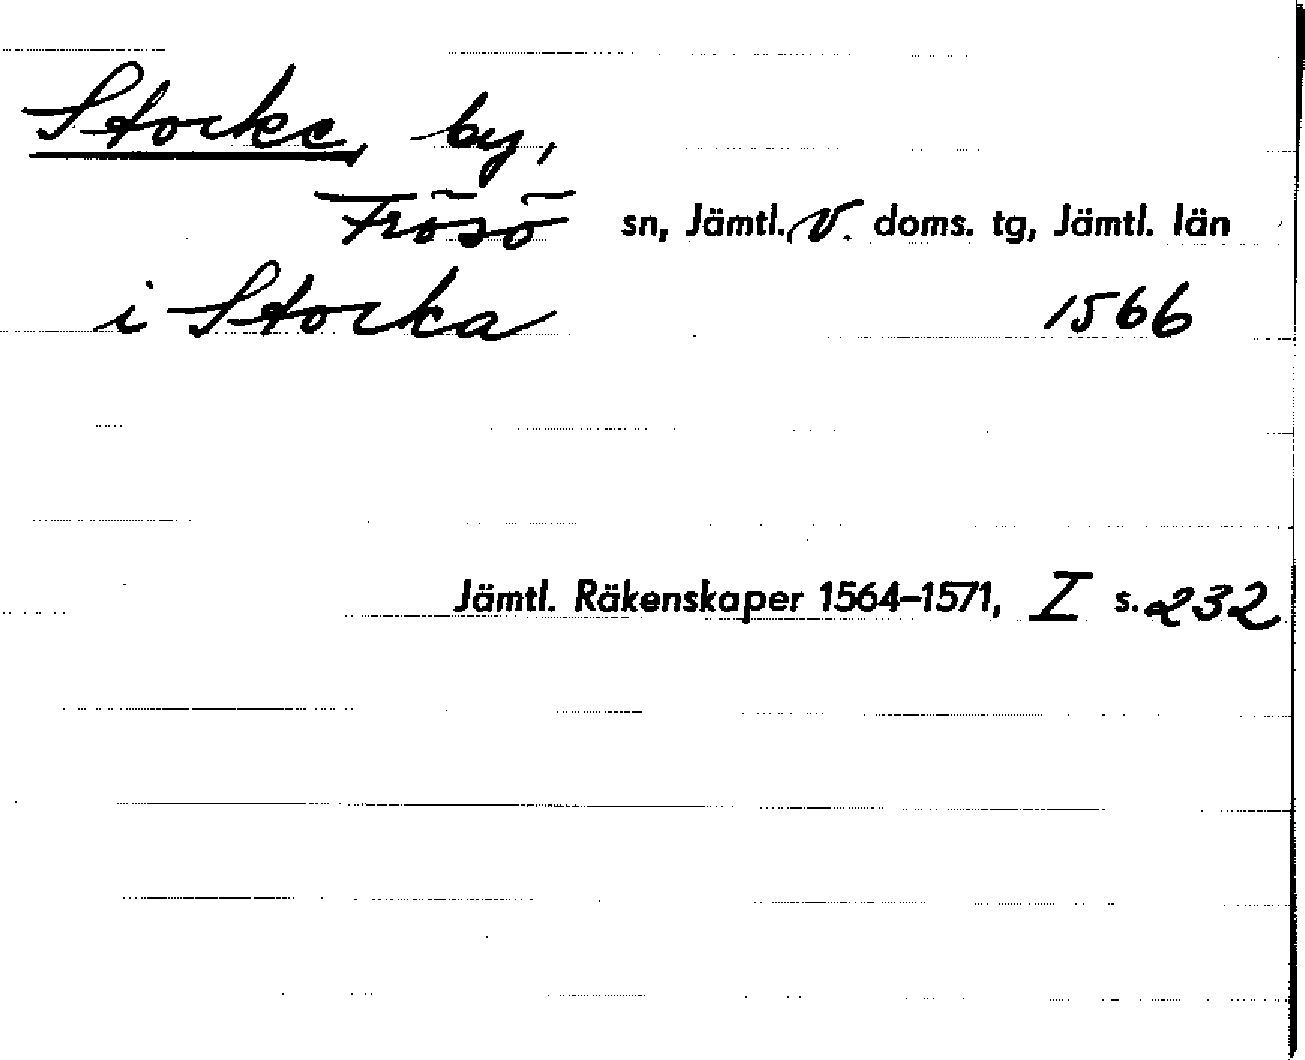 Stocke, by,
Frösö sn, Jämtl. V. doms. tg, Jämtl. län
i Stocka 1566
Jämtl. Räkenskaper 1564–1571, I s. 232